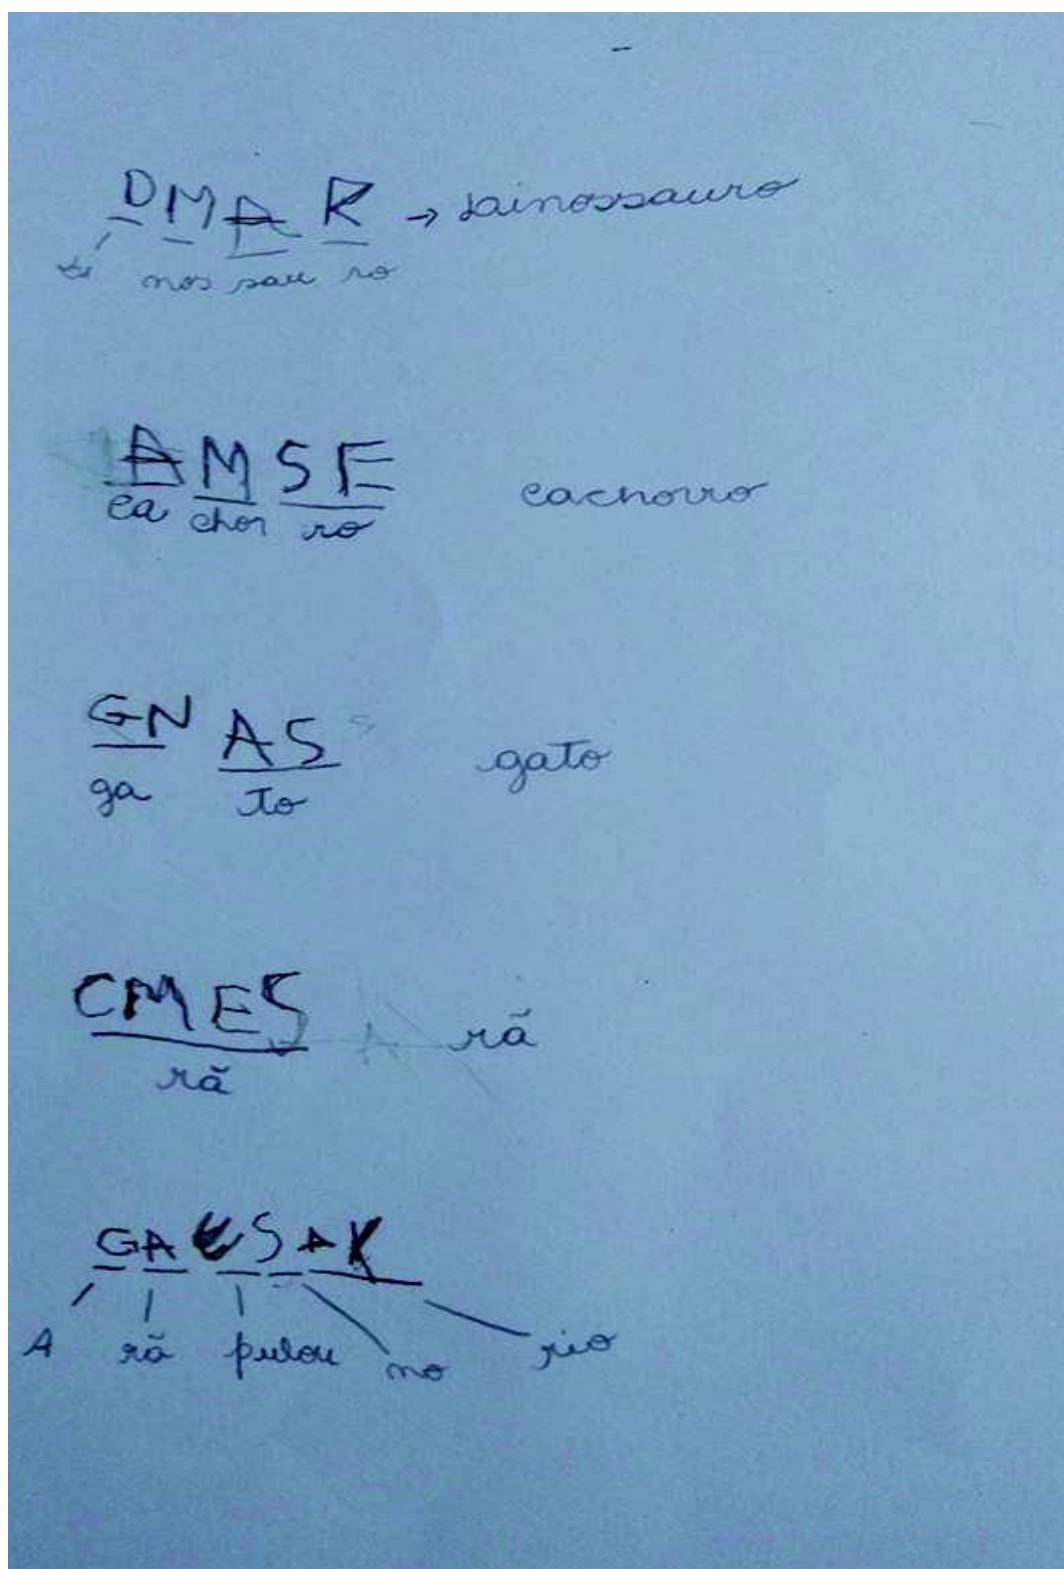 DMAR → dainossauro
di nos sau ro
AMSE cachorro
ca chor ro
GN AS gato
ga to
CMES rã
rã
GAESAK
A rã pulou no rio